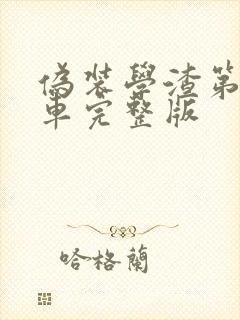 偽裝學渣第
車完整版
哈格蘭